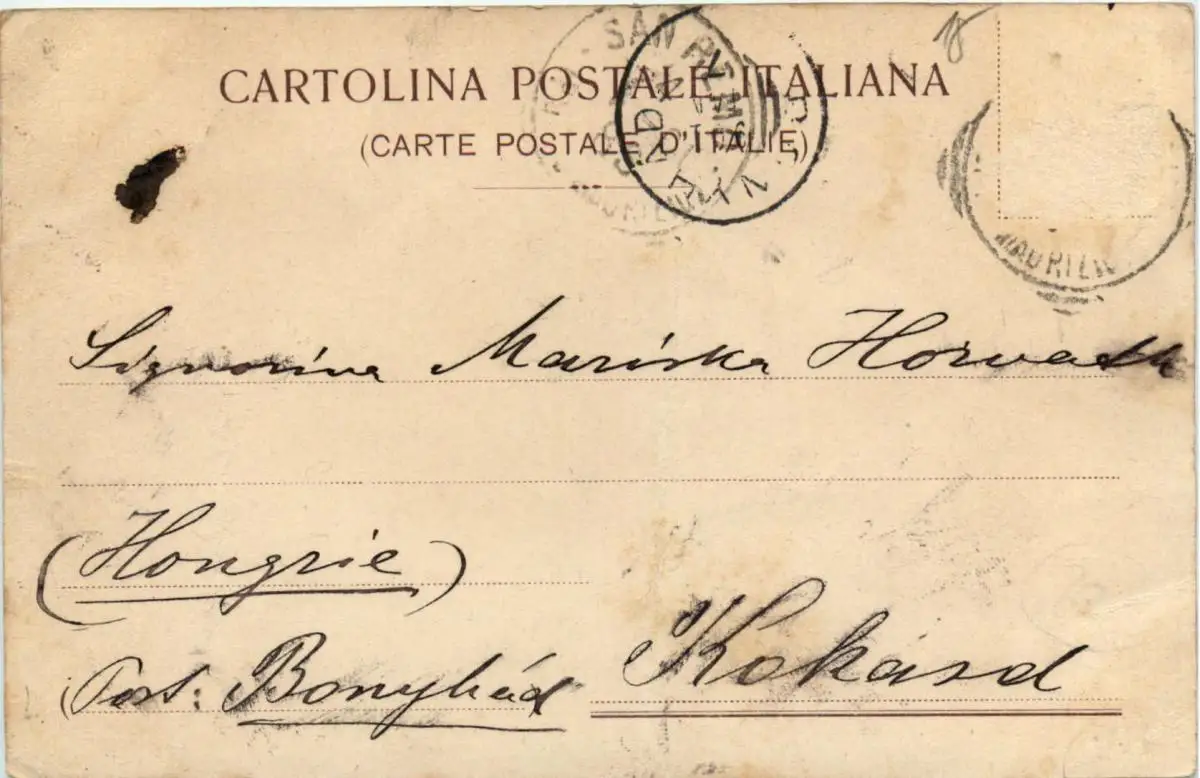 CARTOLINA POSTALE ITALIANA
(CARTE POSTALE D'ITALIE)
SAN REMO
Signorina Mariska Horvath
(Hongrie)
Kokásd
(Post: Bonyhád